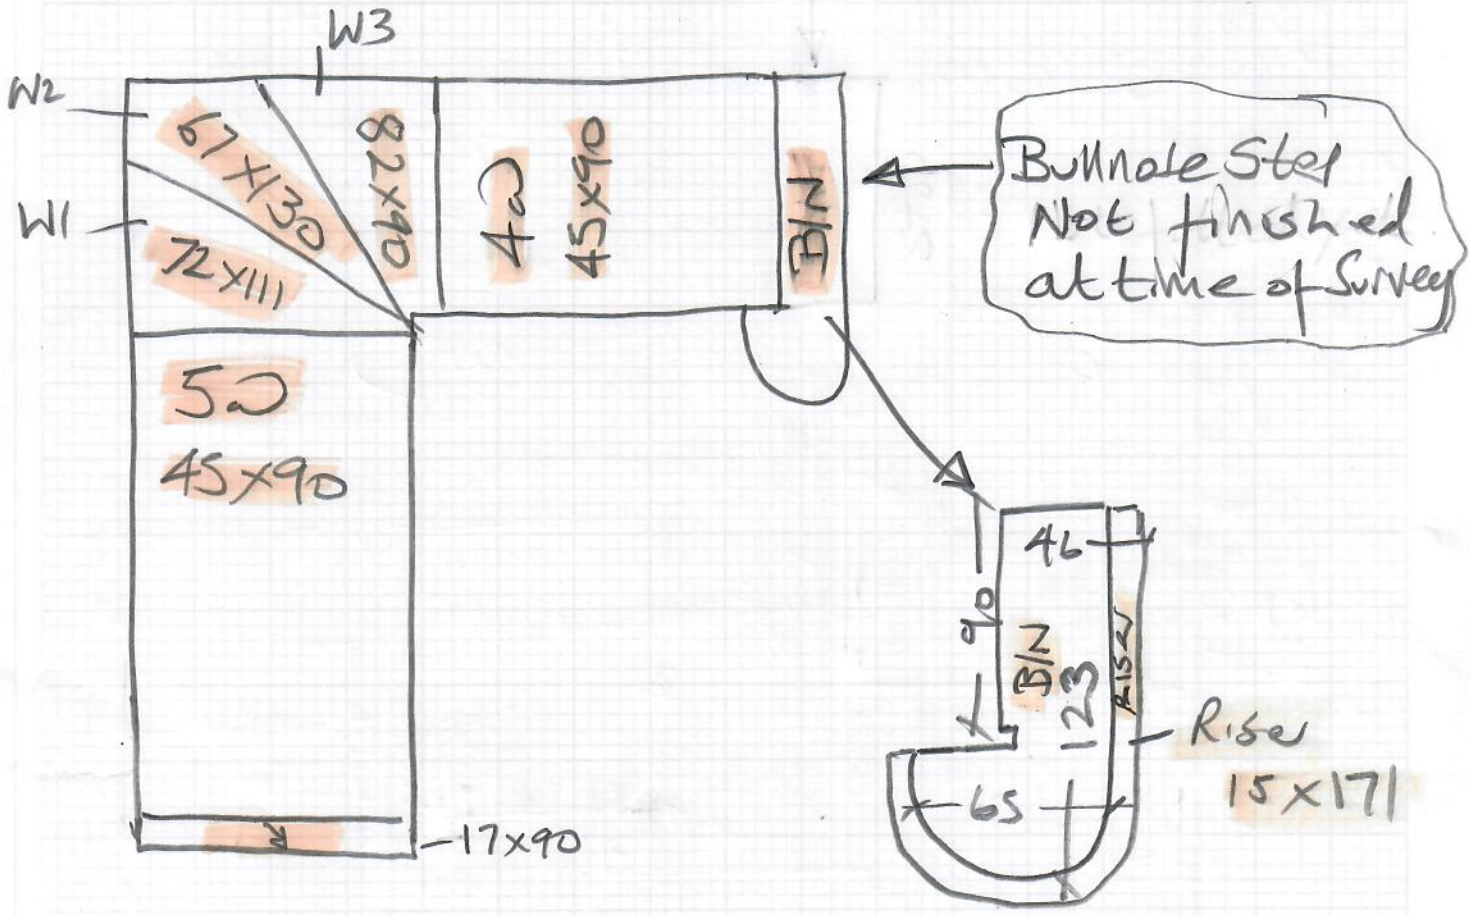 W3
W2
67X130
82x90
W1
72X111
4@
45x90
B/N
Bullnose Step
Not finished
at time of Survey
5@
45x90
17x90
46
90
B/N
123
Riser
65
Riser
15x171